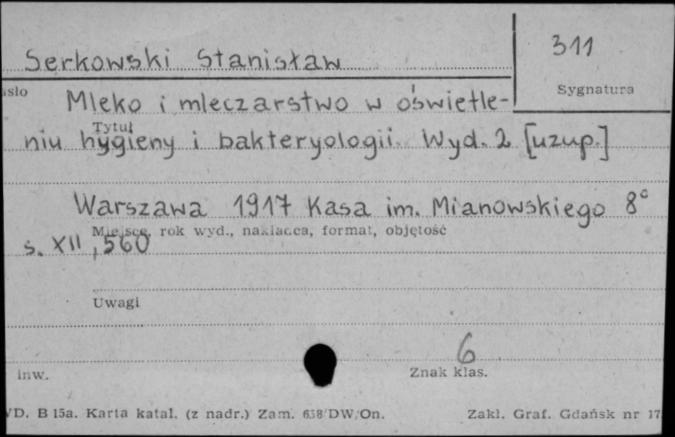 Serkowski Stanisław
311
Sygnatura
Mleko i mleczarstwo w oświetle-
Tytuł
niu hygieny i bakteryologii. Wyd. 2 [uzup.]
Warszawa 1917 Kasa im. Mianowskiego 8°
Miejsce, rok wyd., nakładca, format, objętość
s. XII, 560
Uwagi
6
inw.
Znak klas.
D. B 15a. Karta katal. (z nadr.) Zam. 638/DW/On.
Zakł. Graf. Gdańsk nr 17